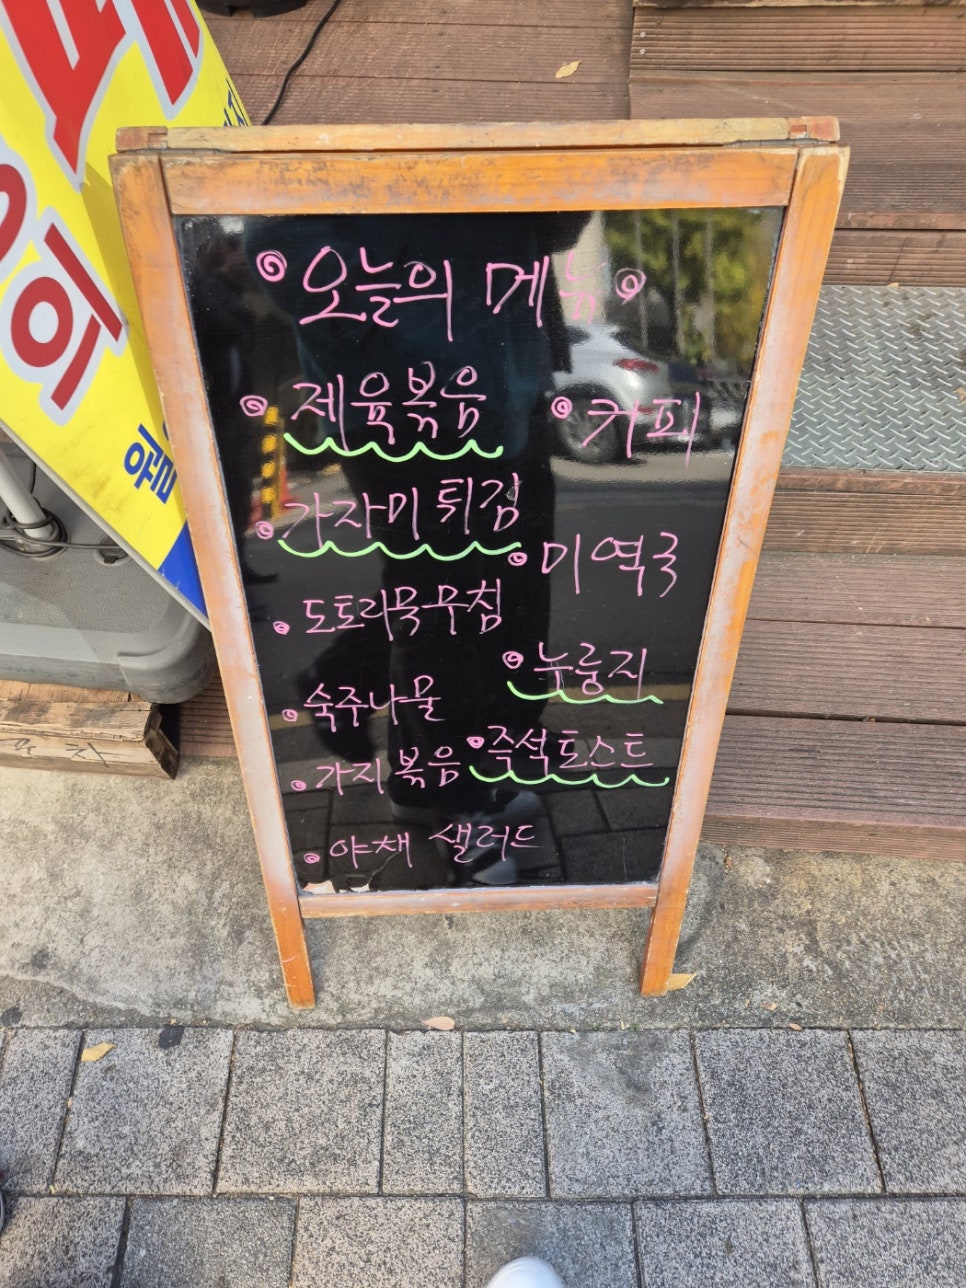 오늘의 메뉴
제육볶음
가자미 튀김
도토리묵무침
숙주나물
가지볶음
야채 샐러드
커피
미역국
누룽지
즉석토스트